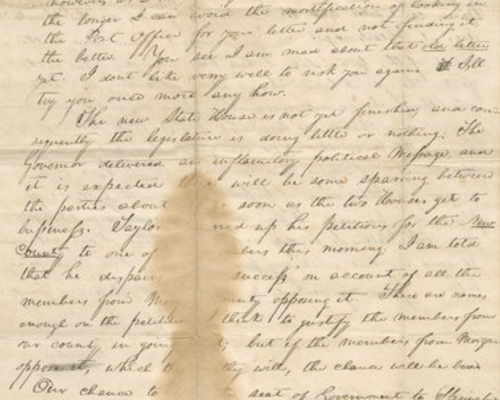 the longer I can avoid the mortification of looking in
the Post Office for your letter and not finding it
the better. You see I am mad about that old letter
yet. I dont like very well to risk you again I'll
try you once more any how.
The new State House is not yet finished, and con-
sequently the legislature is doing little or nothing. The
Governor delivered an inflamatory political Message, and
it is expected will be some sparring between
the parties about soon as the two Houses get to
business. Taylor up his petitions for the New
County to one of bers this morning. I am told
that he dispair success on account of all the
members from Mor unty opposing it. There are names
enough on the petition think to justify the members from
our county in going but if the members from Morgan
oppose it, which they will, the chance will be bad
Our chance to seat of Government to Spring